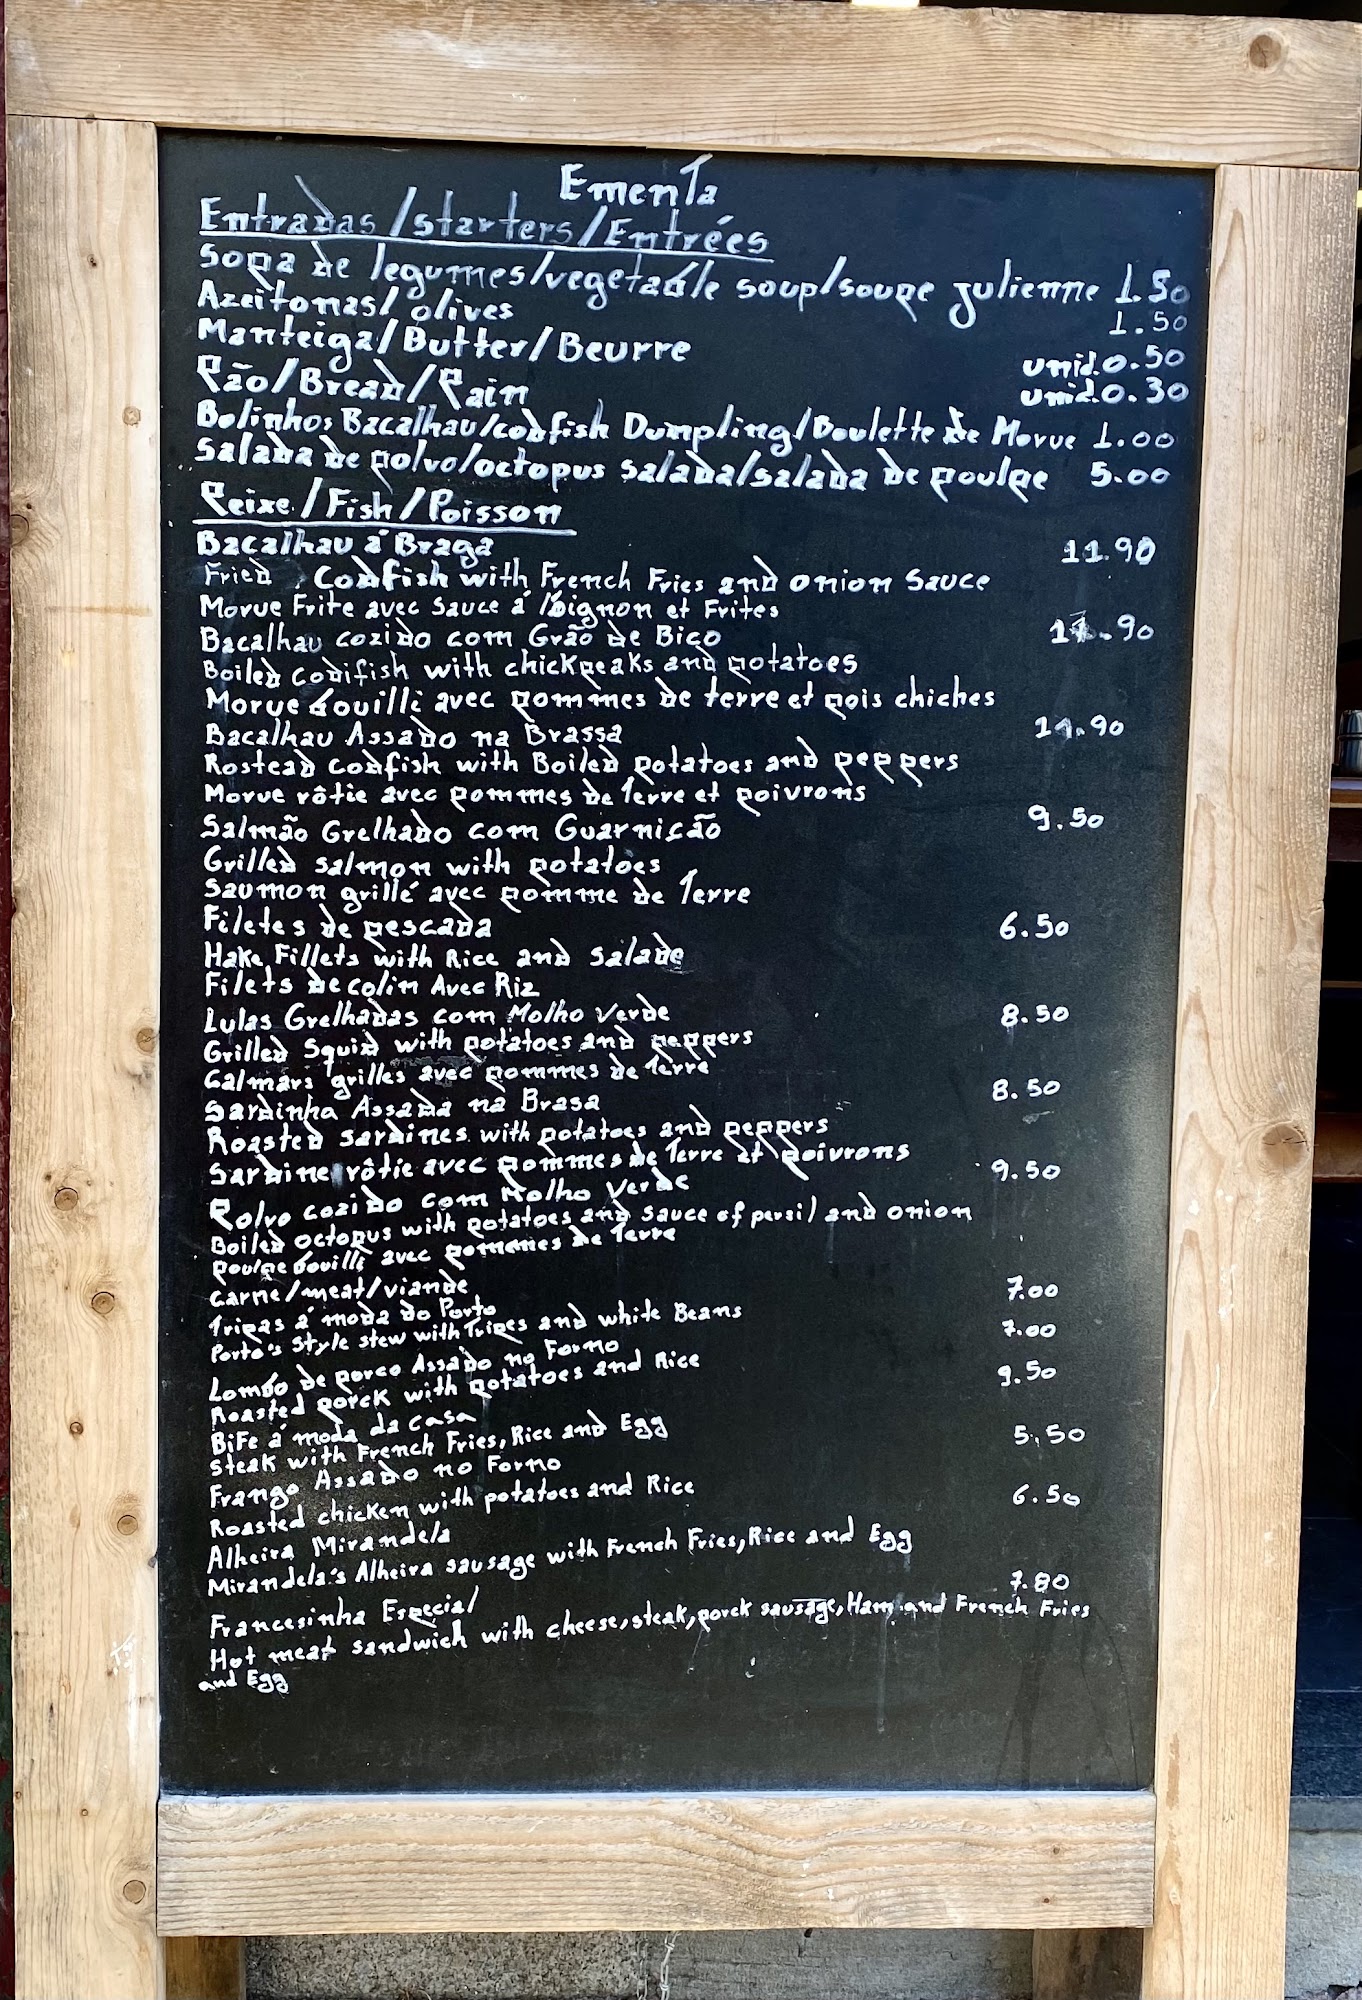 Ementa
Entradas/starters/Entrées
Sopa de legumes/vegetable soup/soupe julienne 1.50
Azeitonas/olives 1.50
Manteiga/Butter/Beurre unid.0.50
Pão/Bread/Pain unid.0.30
Bolinhos Bacalhau/codfish Dumpling/Boulette de Morue 1.00
Salada de polvo/octopus salada/salada de poulpe 5.00
Peixe/Fish/Poisson
Bacalhau á Braga 11.90
Fried Codfish with French Fries and onion Sauce
Morue Frite avec Sauce á l'oignon et Frites
Bacalhau cozido com Grão de Bico 11.90
Boiled codifish with chickpeaks and potatoes
Morue bouilli avec pommes de terre et pois chiches
Bacalhau Assado na Brassa 11.90
Rostead codfish with Boiled potatoes and peppers
Morue rôtie avec pommes de Terre et poivrons
Salmão Grelhado com Guarnição 9.50
Grilled salmon with potatoes
Saumon grillé avec pomme de Terre
Filetes de pescada 6.50
Hake Fillets with Rice and Salade
Filets de colin Avec Riz
Lulas Grelhadas com Molho Verde 8.50
Grilled Squid with potatoes and peppers
Calmars grilles avec pommes de Terre
Sardinha Assada na Brasa 8.50
Roasted sardines with potatoes and peppers
Sardine rôtie avec pommes de Terre et poivrons
Polvo cozido com Molho Verde 9.50
Boiled octopus with potatoes and sauce of persil and onion
poulpe bouilli avec pommes de Terre
Carne/meat/viande
Tripas á moda do Porto 7.00
Porto's Style stew with Tripes and white Beans
Lombo de porco Assado no Forno 7.00
Roasted porck with potatoes and Rice
BiFe á moda da casa 9.50
Steak with French Fries, Rice and Egg
Frango Assado no Forno 5.50
Roasted chicken with potatoes and Rice
Alheira Mirandela 6.50
Mirandela's Alheira sausage with French Fries, Rice and Egg
Francesinha Especial 7.80
Hot meat sandwich with cheese, steak, porck sausage, Ham and French Fries
and Egg